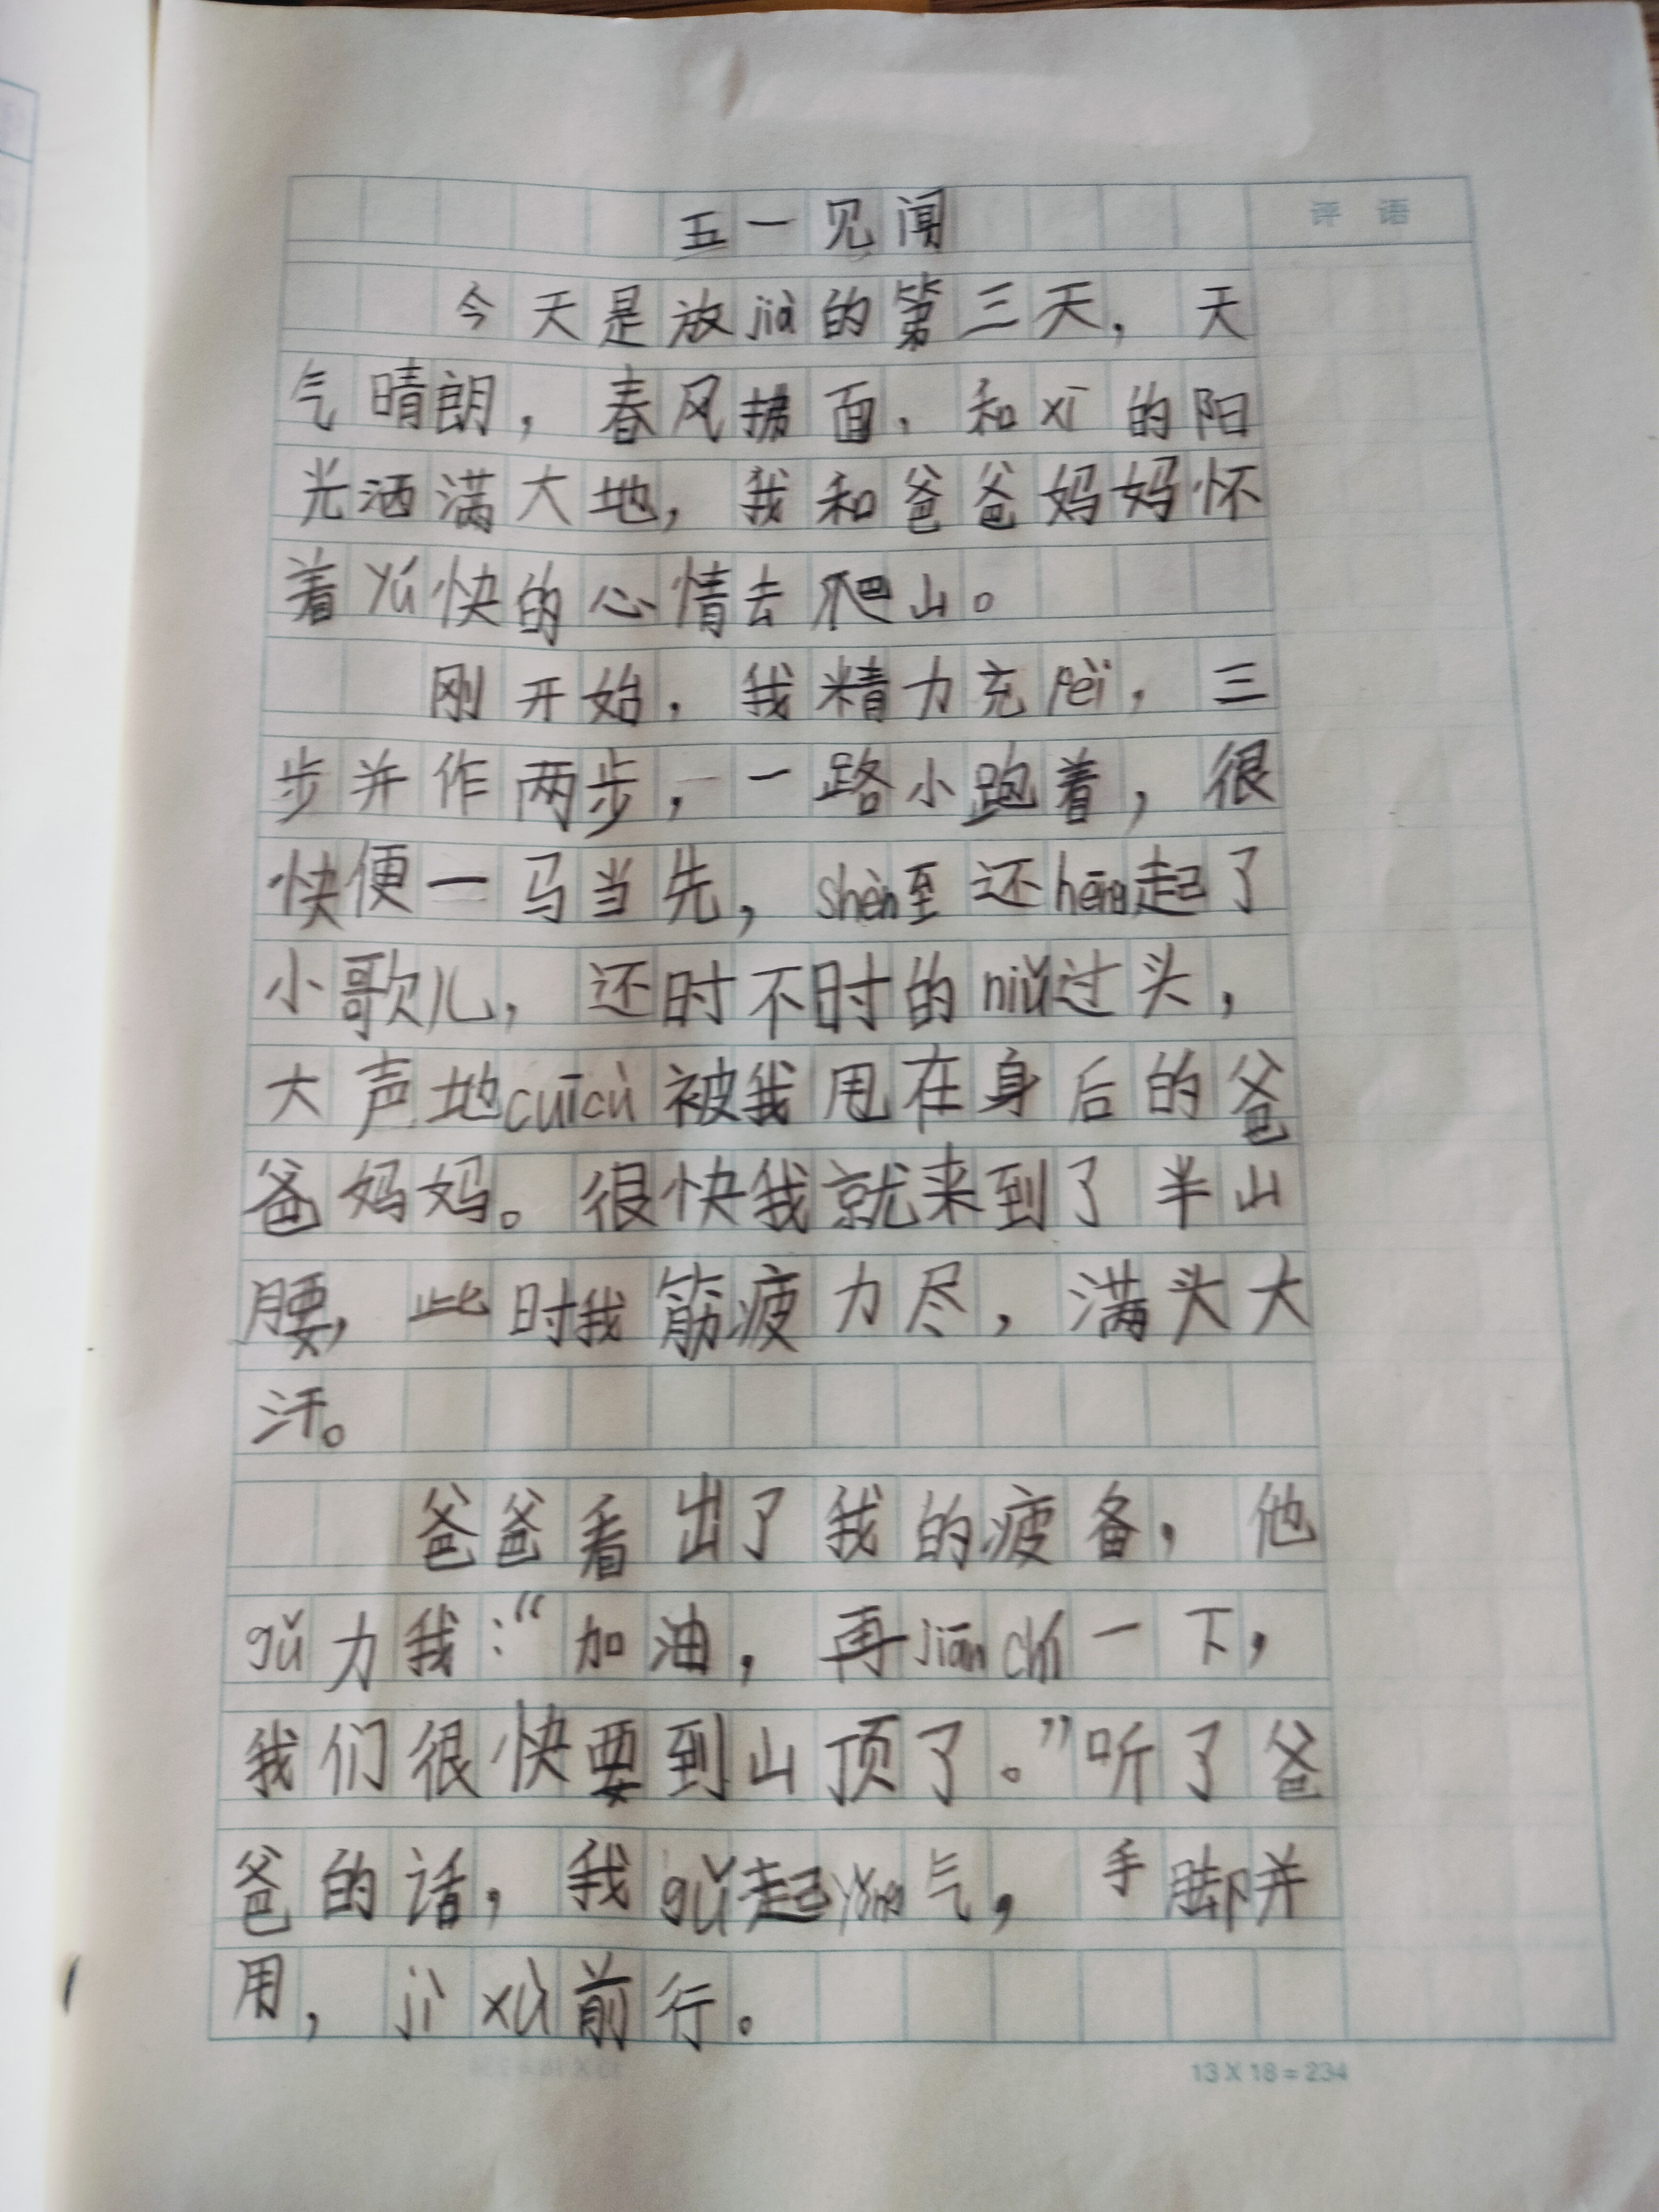 五一见闻
评 语
今天是放jià的第三天，天
气晴朗，春风拂面，和xī的阳
光洒满大地，我和爸爸妈妈怀
着yú快的心情去爬山。
刚开始，我精力充pèi，三
步并作两步，一路小跑着，很
快便一马当先，shèn至还hēng起了
小歌儿，还时不时的niǔ过头，
大声地cuīcù被我甩在身后的爸
爸妈妈。很快我就来到了半山
腰，此时我筋疲力尽，满头大
汗。
爸爸看出了我的疲备，他
gǔ力我：“加油，再jiān chí一下，
我们很快要到山顶了。”听了爸
爸的话，我gǔ起yǒng气，手脚并
用，jì xù前行。
13×18=234